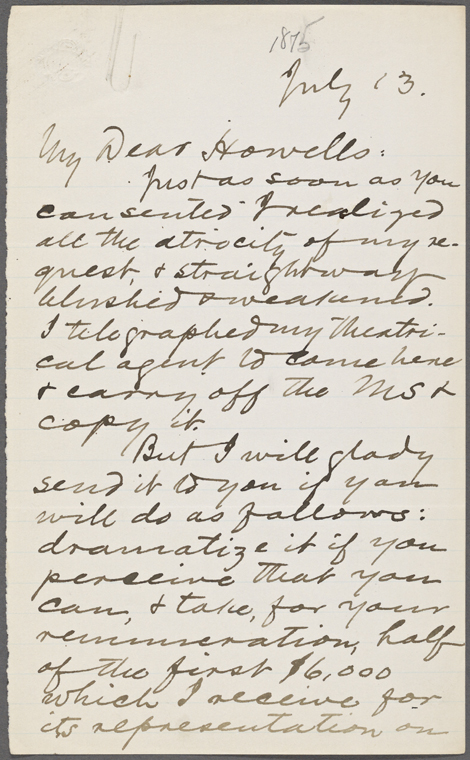 1875
July 13.
My Dear Howells:
Just as soon as you
consented I realized
all the atrocity of my re-
quest, & straightway
blushed & weakened.
I telegraphed my theatri-
cal agent to come here
& carry off the MS &
copy it.
But I will glady
send it to you if you
will do as follows:
dramatize it if you
perceive that you
can, & take, for your
remuneration, half
of the first $6,000
which I receive for
its representation on